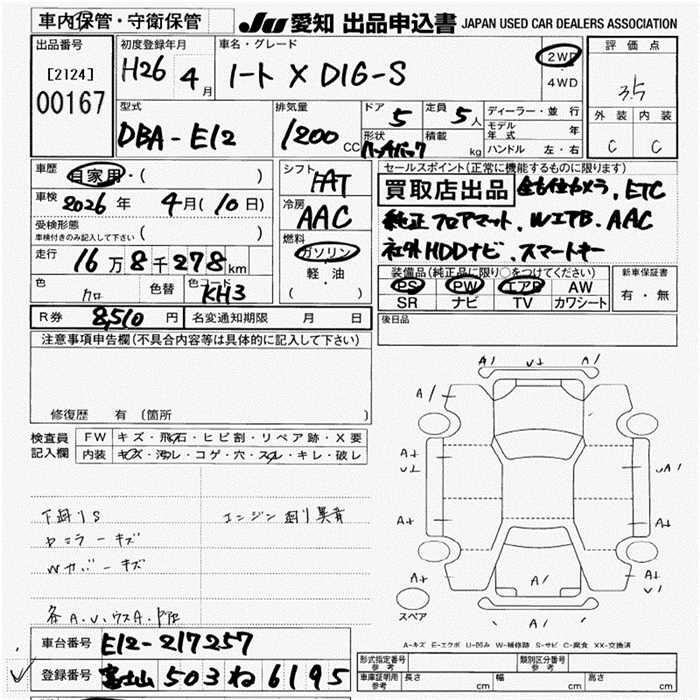 車内保管・守衛保管
JU 愛知 出品申込書 JAPAN USED CAR DEALERS ASSOCIATION
出品番号
[2124]
00167
初度登録年月
H26 4月
車名・グレード
ノート X DIG-S
2WD
4WD
評価点
3.5
外装 内装
C C
型式
DBA-E12
排気量
1200 CC
ドア 5
定員 5人
形状
ハッチバック
積載 kg
ディーラー・並行
モデル年式 年
ハンドル 左・右
車歴 自家用・( )
車検 2026年 4月(10日)
受検形態
車検付きのみ記入して下さい ( )
走行 16万8千278km
色 クロ
色替
色コード KH3
シフト
FAT
冷房
AAC
燃料
ガソリン
軽・油
( )
セールスポイント(正常に機能するものに限ります)
買取店出品
ETC
純正フロアマット、WエアB、AAC
社外HDDナビ、スマートキー
装備品(純正品に限り○をつけてください)
PS PW エアB AW
SR ナビ TV カワシート
新車保証書
有・無
R券 8,510円
名変通知期限 月 日
後日品
注意事項申告欄(不具合内容等は具体的に記入して下さい)
修復歴 有(箇所 )
検査員記入欄
FW キズ・飛石・ヒビ割・リペア跡・X要
内装 キズ・汚れ・コゲ・穴・スレ・キレ・破レ
下廻りS
エンジン廻り異音
Wカバーキズ
A1 U+ A1
A1
A+
U+
A+
A+
A1
UA1
A+
A+
U1
A1
スペア
A-キズ E-エクボ U-凹み W-補修跡 S-サビ C-腐食 XX-交換済
車台番号 E12-217257
登録番号 富士山 503 ね 6195
形式指定番号
参考
類別区分番号
参考
車庫証明用
参考
長さ cm
幅 cm
高さ cm